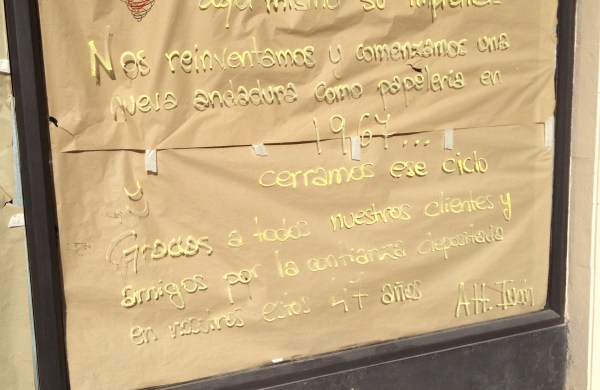 aquí mismo su imprenta
Nos reinventamos y comenzamos una
nueva andadura como papelería en
1967...
y cerramos ese ciclo
Gracias a todos nuestros clientes y
amigos por la confianza depositada
en nosotros estos 47 años Att.